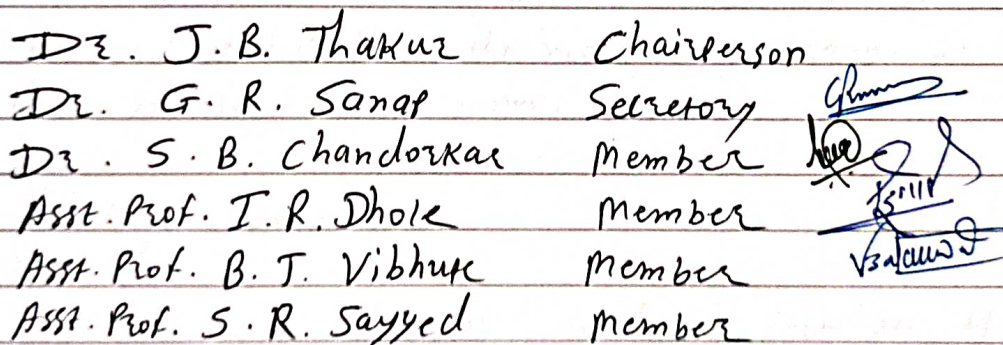 Dr. J. B. Thakur Chairperson
Dr. G. R. Sanap Secretory
Dr. S. B. Chandorkar Member
Asst. Prof. I. R. Dhole Member
Asst. Prof. B. T. Vibhute Member
Asst. Prof. S. R. Sayyed Member